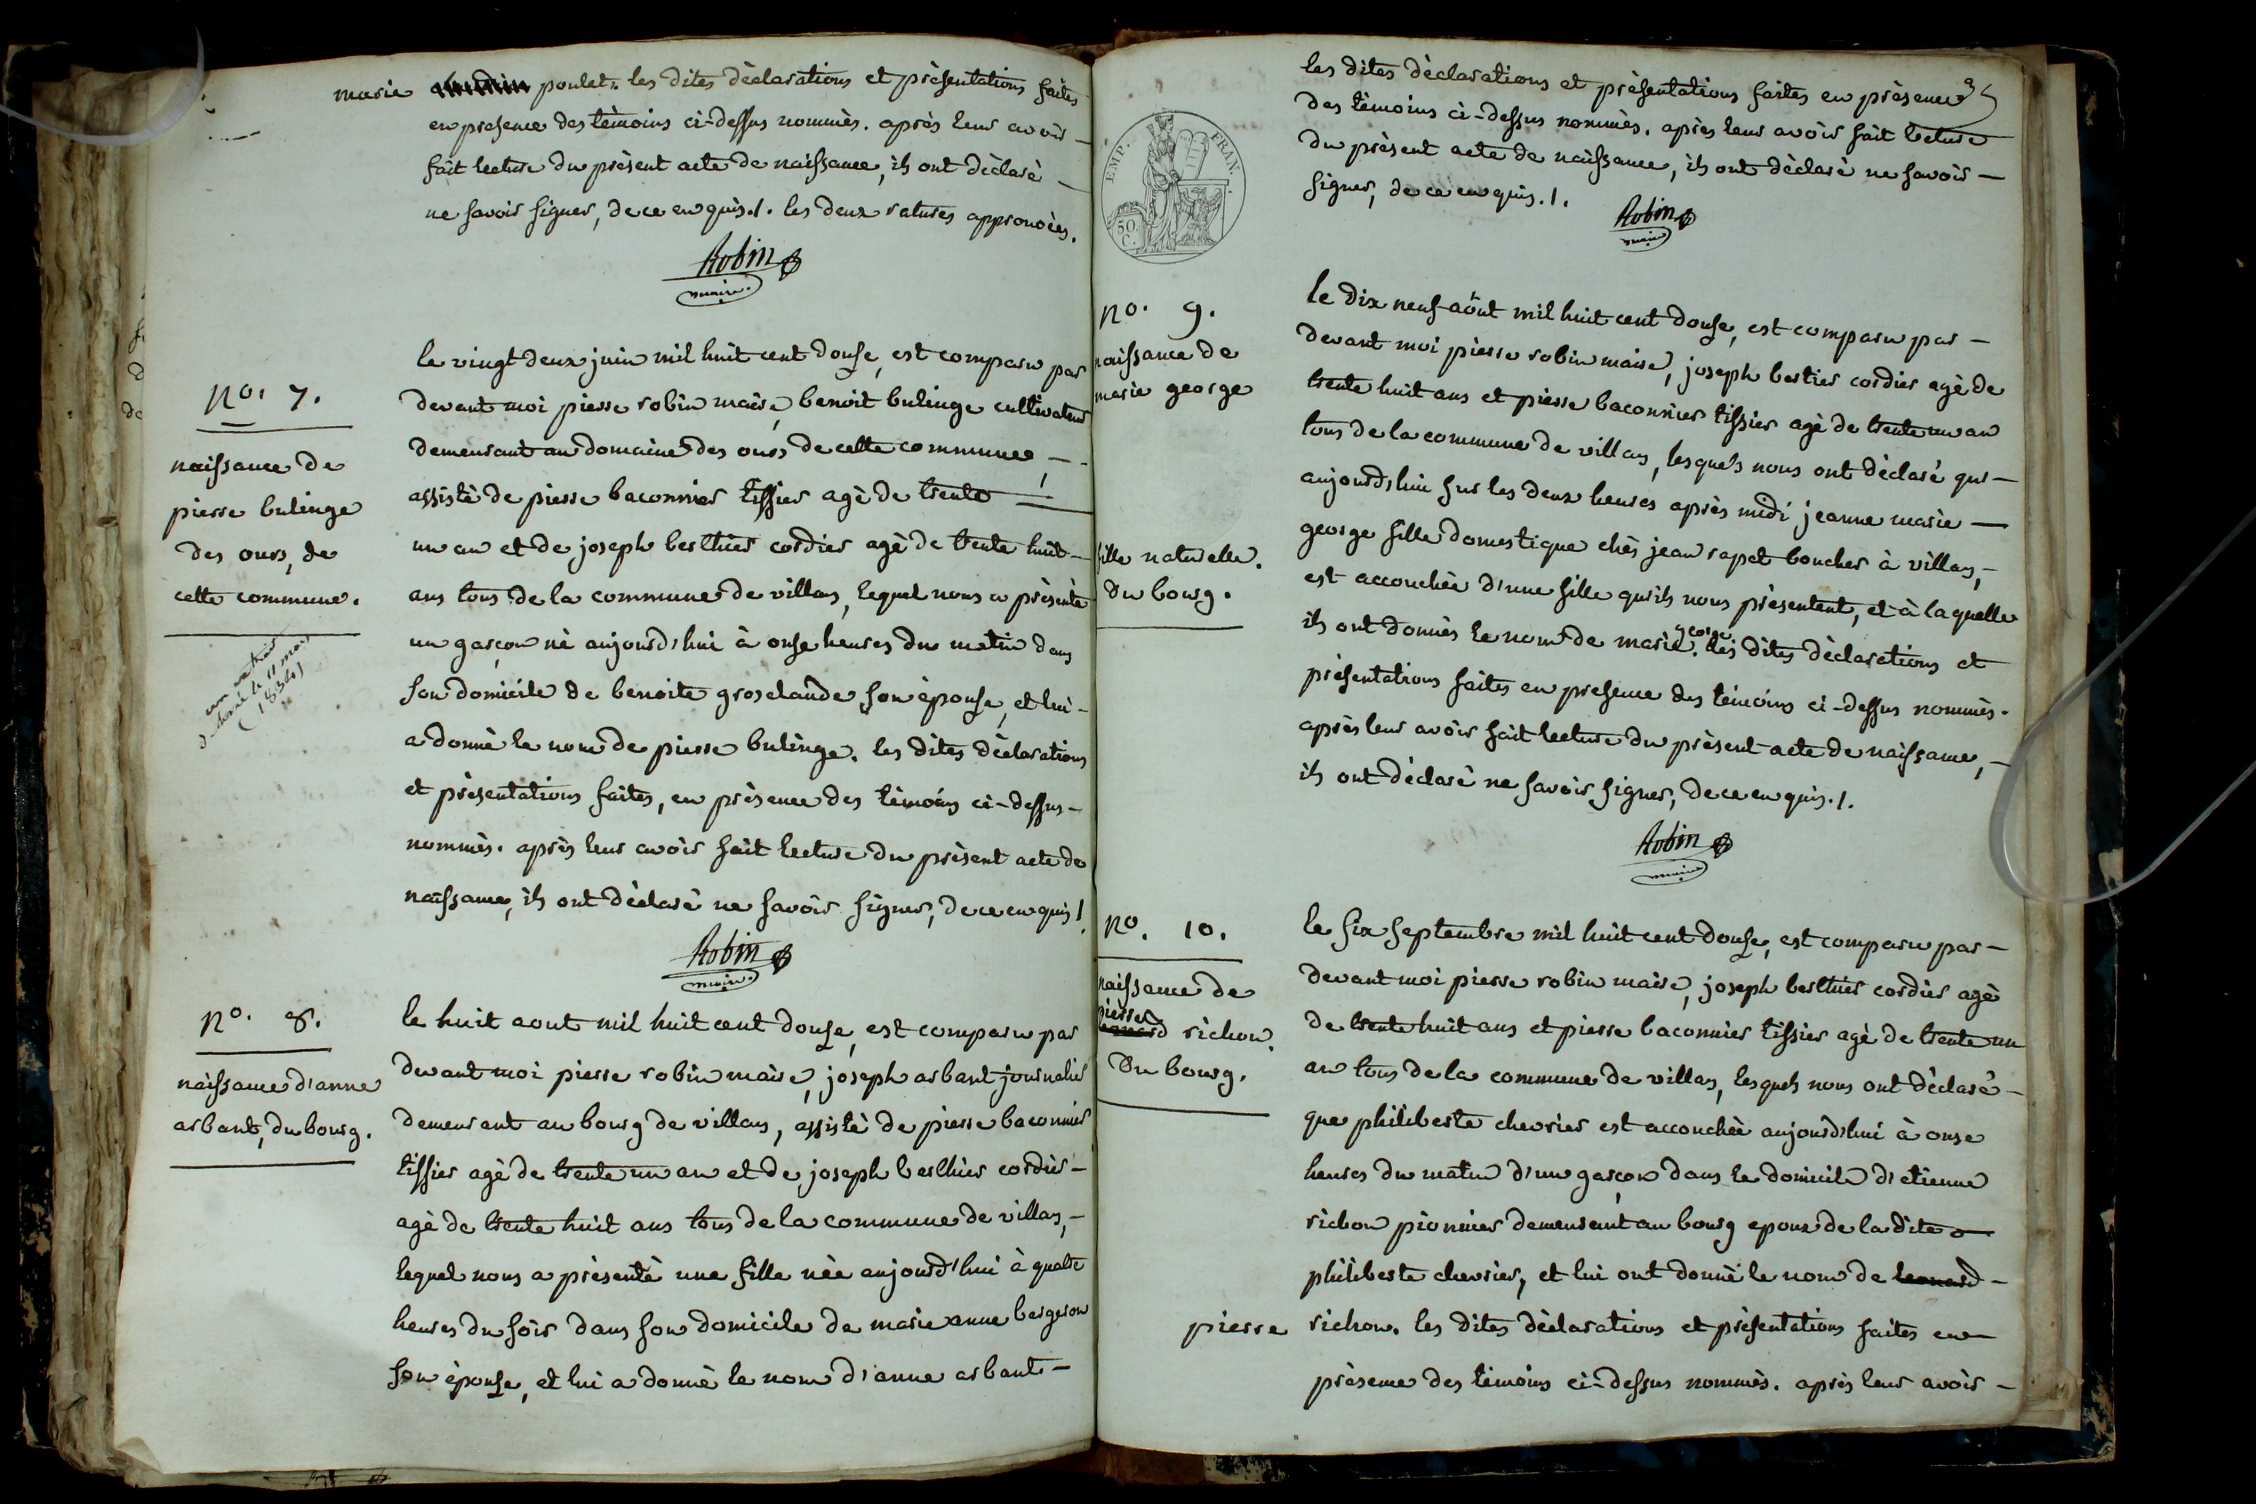 marie poulet. les dites dèclarations et prèsentations faites
en presence des tèmoins ci-dessus nommès. après leur avoir
fait lecture du prèsent acte de naissance, ils ont dèclarè
ne savoir signer, de ce enquis./. les deux ratures approuvèes.
Robin
maire.
no. 7.
naissance de
pierre bulinge
des ours, de
cette commune.
un extrait
délivré le 11 mars
(1834)
le vingt deux juin mil huit cent douse, est comparu par
devant moi pierre robin maire, benoit bulinge cultivateur
demeurant au domaine des ours de cette commune,
assistè de pierre baconnier tissier agè de trente
un an et de joseph berthier cordier agè de trente huit
ans tous de la commune de villars, lequel nous a prèsentè
un garçon nè aujourd'hui à onse heures du matin dans
son domicile de benoite groselande son èpouse, et lui
a donnè le nom de pierre bulinge. les dites dèclarations
et prèsentations faites, en prèsence des tèmoins ci-dessus
nommès. après leur avoir fait lecture du prèsent acte de
naissance, ils ont dèclarè ne savoir signer, de ce enquis /.
Robin
maire.
no. 8.
naissance d'anne
arbant, du bourg.
le huit aout mil huit cent douse, est comparu par
devant moi pierre robin maire, joseph arbant journalier
demeurant au bourg de villars, assistè de pierre baconnier
tissier agè de trente un an et de joseph berthier cordier
agè de trente huit ans tous de la commune de villars,
lequel nous a prèsentè une fille nèe aujourd'hui à quatre
heures du soir dans son domicile de marie anne bergeron
son èpouse, et lui a donnè le nom d'anne arbant
35
EMP. FRAN.
50 C.
les dites dèclarations et prèsentations faites en prèsence
des tèmoins ci-dessus nommès. après leur avoir fait lecture
du prèsent acte de naissance, ils ont dèclarè ne savoir
signer, de ce enquis./.
Robin
maire
no. 9.
naissance de
marie george
fille naturelle.
du bourg.
le dix neuf août mil huit cent douse, est comparu par
devant moi pierre robin maire, joseph bertier cordier agè de
trente huit ans et pierre baconnier tissier agè de trente un an
tous de la commune de villars, lesquels nous ont dèclarè que
aujourd'hui sur les deux heures après midi jeanne marie
george fille domestique chès jean rapet boucher à villars,
est accouchèe d'une fille qu'ils nous prèsentent, et à laquelle
ils ont donnès le nom de marie george. les dites dèclarations et
prèsentations faites en presence des tèmoins ci-dessus nommès.
après leur avoir fait lecture du prèsent acte de naissance,
ils ont dèclarè ne savoir signer, de ce enquis./.
Robin
maire
no. 10.
naissance de
pierre
leonard richon.
du bourg.
le six septembre mil huit cent douse, est comparu par
devant moi pierre robin maire, joseph berthier cordier agè
de trente huit ans et pierre baconnier tissier agè de trente un
an tous de la commune de villars, lesquels nous ont dèclarè
que philiberte chevrier est accouchèe aujourd'hui à onze
heures du matin d'un garçon dans le domicile d'etienne
richon pionnier demeurant au bourg epoux de la dite
philiberte chevrier, et lui ont donnè le nom de leonard
pierre richon. les dites dèclarations et prèsentations faites en
prèsence des tèmoins ci-dessus nommès. après leur avoir